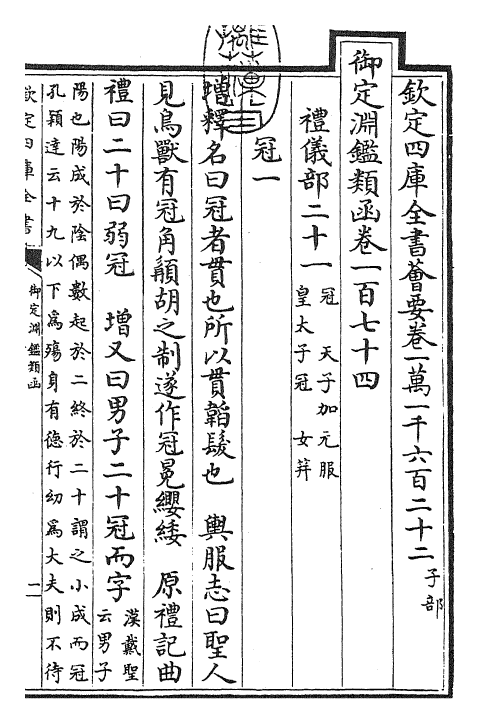 欽定四庫全書薈要卷一萬一千六百二十二 子部
御定淵鑑類函卷一百七十四
禮儀部二十一 冠 天子加元服
皇太子冠 女笄
冠一
增釋名曰冠者貫也所以貫韜髮也 輿服志曰聖人
見鳥獸有冠角胡之制遂作冠冕纓緌 原禮記曲
禮曰二十曰弱冠 增又曰男子二十冠而字 漢戴聖
云男子
陽也陽成於陰偶數起於二終於二十謂之小成而冠
孔穎達云十九以下為殤身有德行幼為大夫則不待
欽定四庫全書
御定淵鑑類函
一